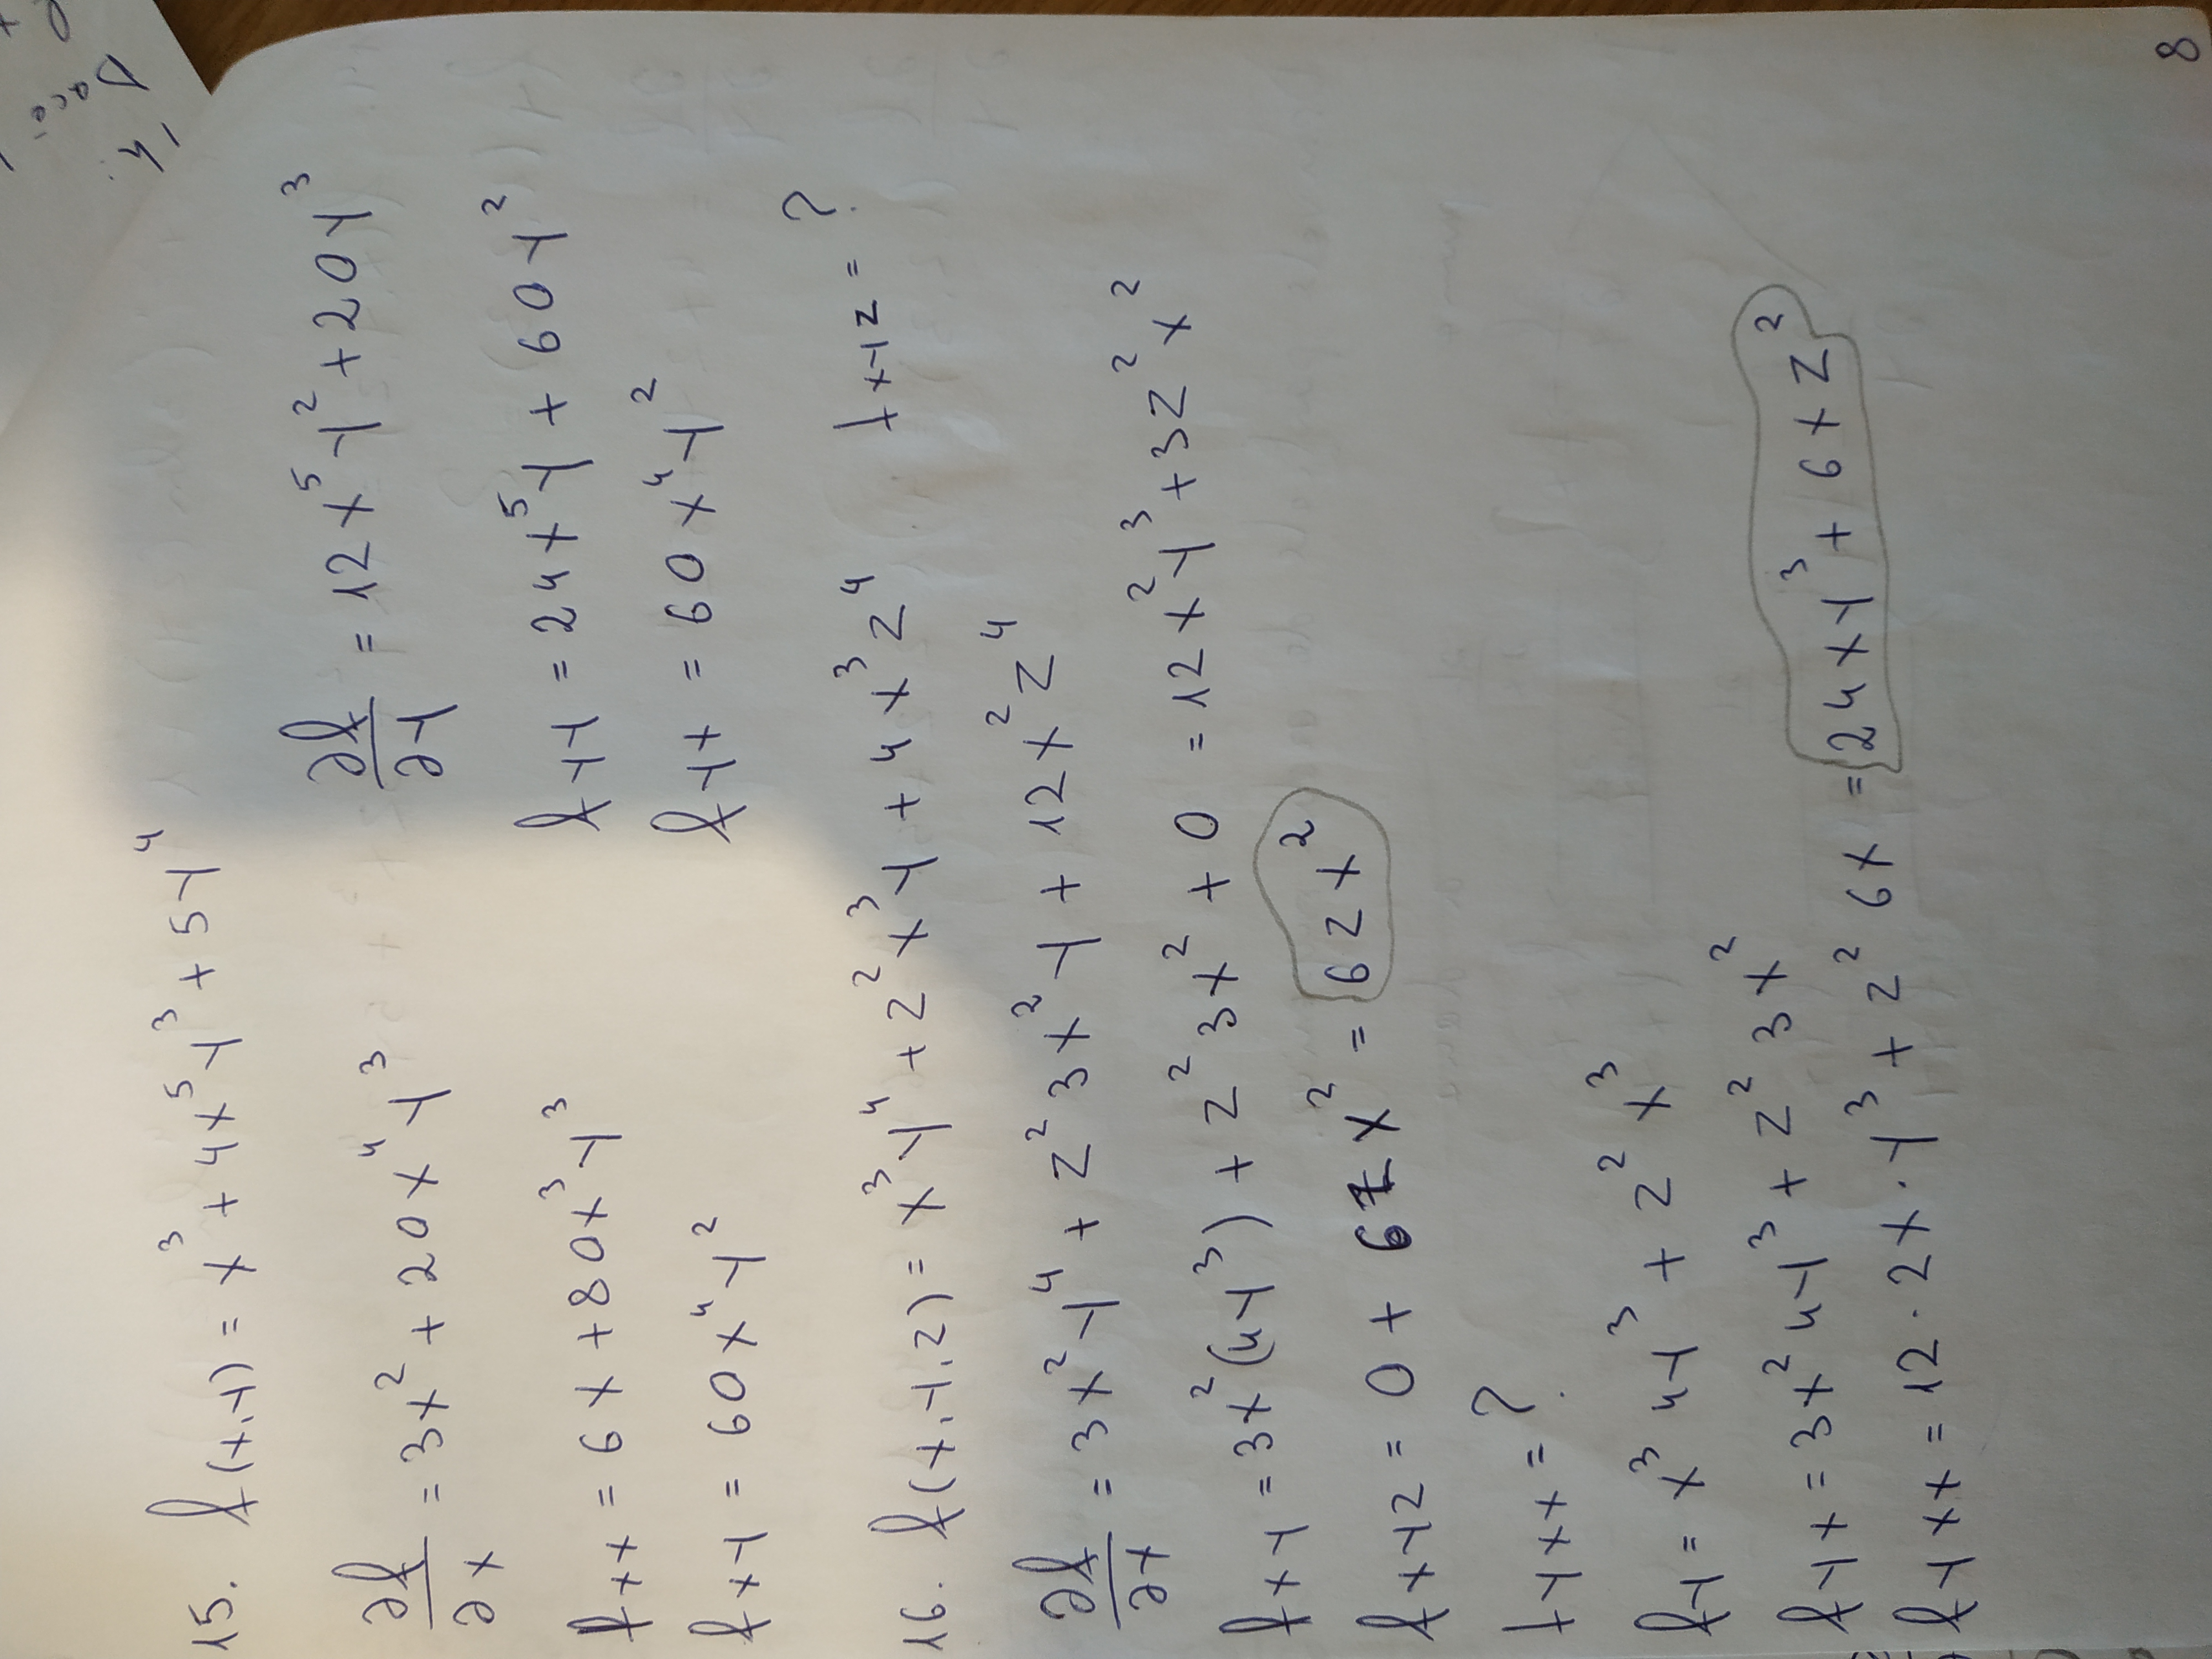 15. f(x,y) = x³ + 4x⁵y³ + 5y⁴
∂f/∂x = 3x² + 20x⁴y³
∂f/∂y = 12x⁵y² + 20y³
fxx = 6x + 80x³y³
fyy = 24x⁵y + 60y²
fxy = 60x⁴y²
fyx = 60x⁴y²
16. f(x,y,z) = x³y⁴ + z²x³y + 4x³z⁴ fxyz = ?
∂f/∂x = 3x²y⁴ + z²3x²y + 12x²z⁴
fxy = 3x²(4y³) + z²3x² + 0 = 12x²y³ + 3z²x²
fxyz = 0 + 6zx² = 6zx²
fyxx = ?
fy = x³4y³ + z²x³
fyx = 3x²4y³ + z²3x²
fyxx = 12·2x·y³ + z²6x = 24xy³ + 6xz²
8